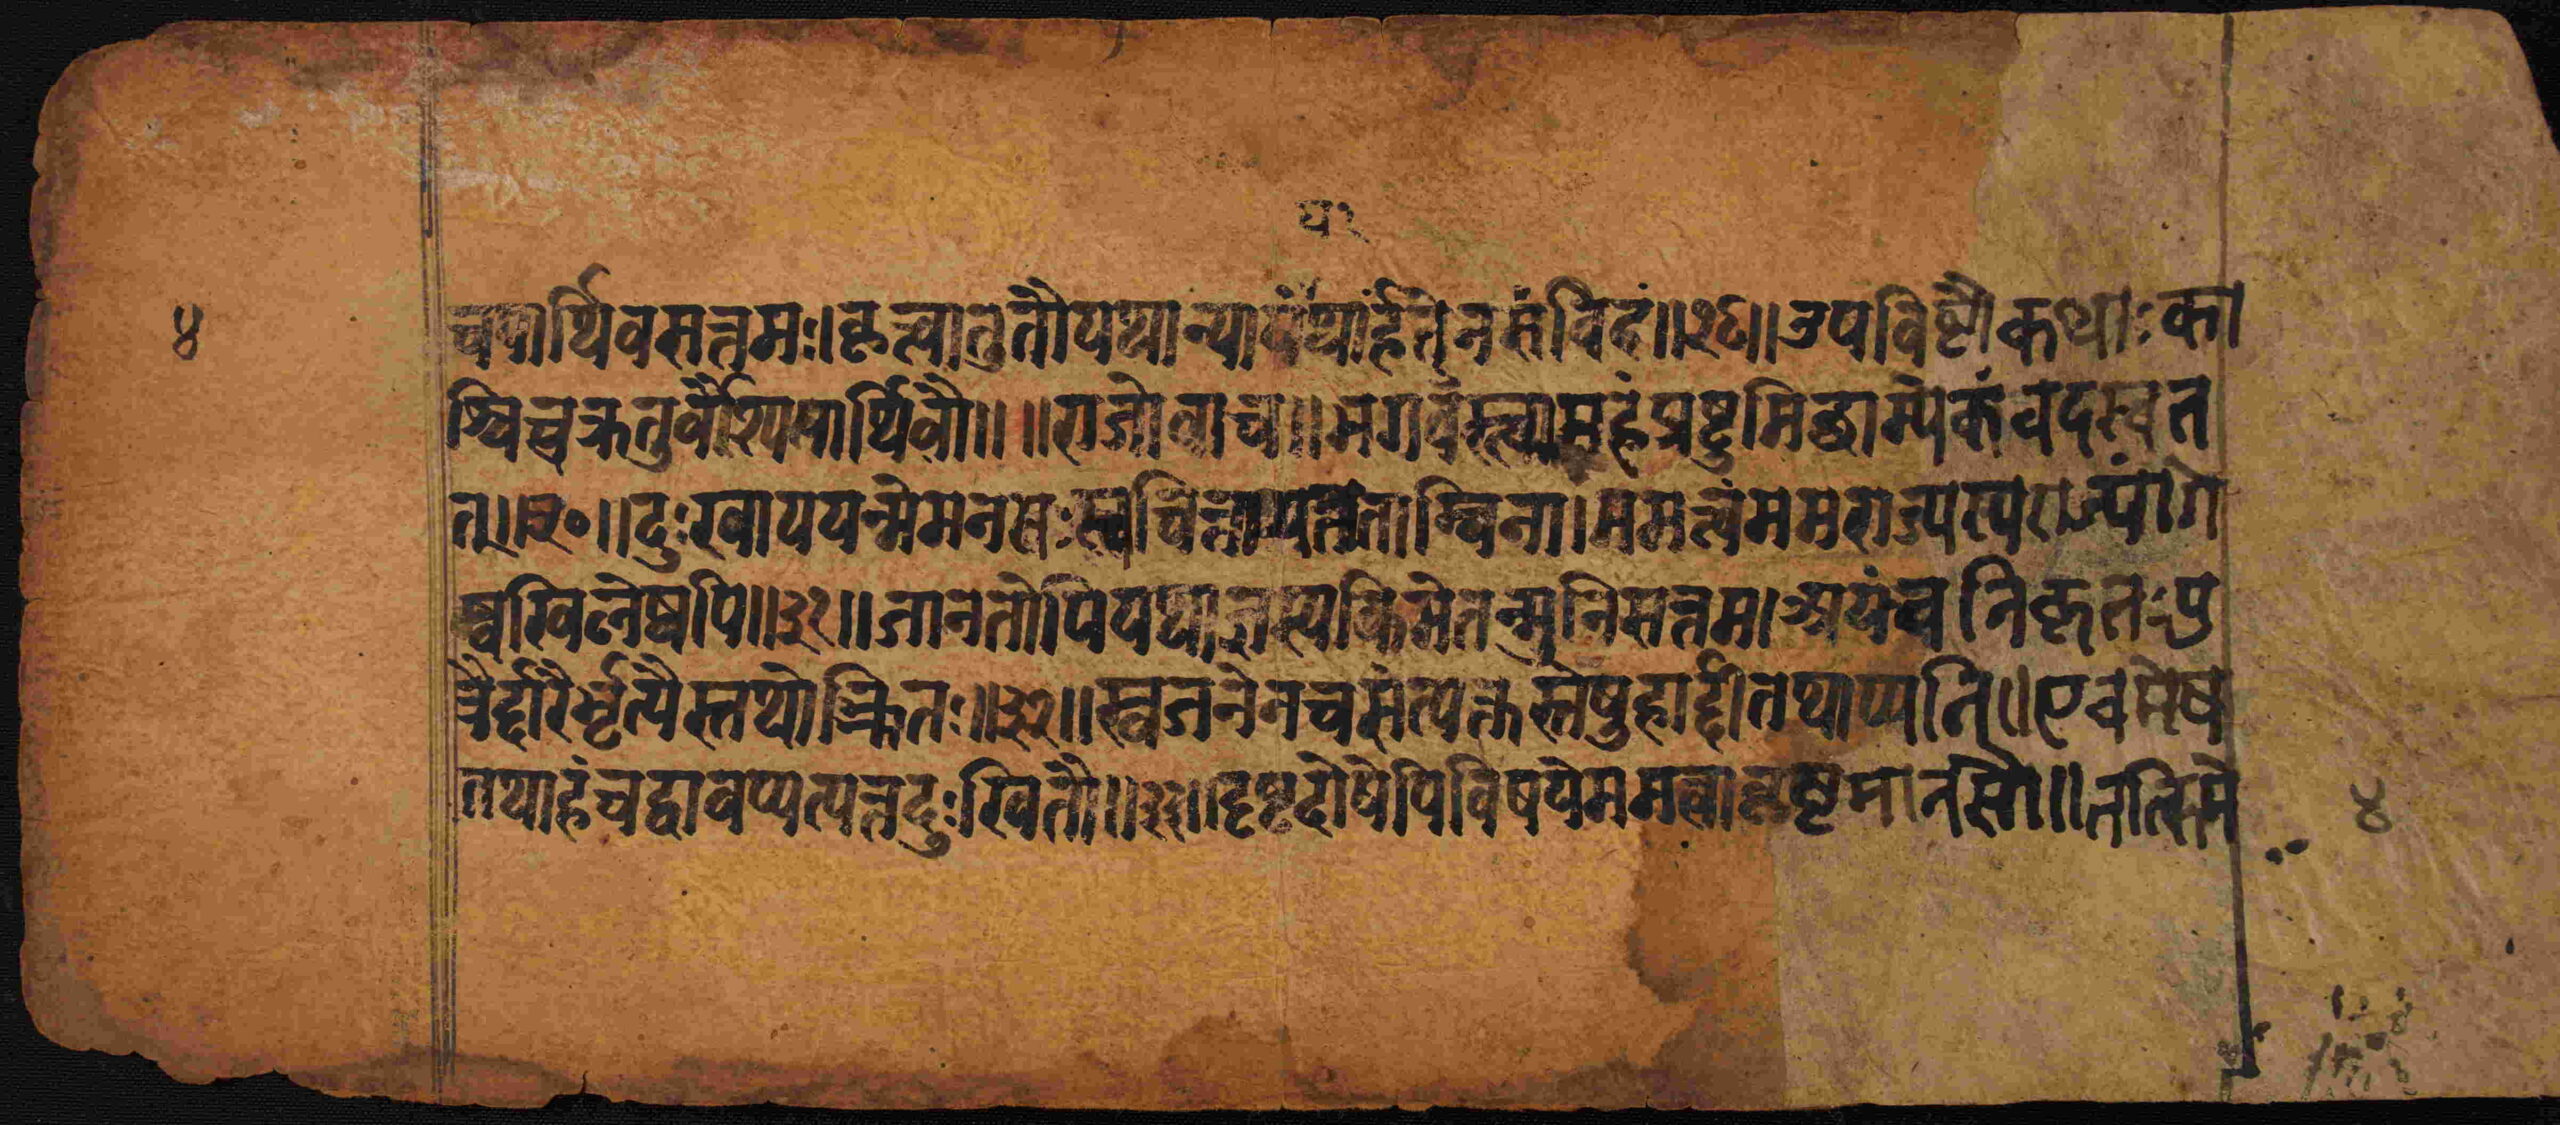 य१
४
चपार्थिवसत्तमः।कृत्वातुतौयथान्यायंयथार्हंतेनसंविदं॥२९॥उपविष्टौकथाःका
श्चिच्चक्रतुर्वैश्यपार्थिवौ॥॥राजोवाच॥भगवंस्त्वामहंप्रष्टुमिछाम्येकंवदस्वत
त्॥३०॥दुःखाययन्मेमनसःस्वचित्तायत्ततांविना।ममत्वंममराज्यस्यराज्यांगे
ष्वखिलेष्वपि॥३१॥जानतोपियथाज्ञस्यकिमेतन्मुनिसत्तम।अयंचनिकृतःपु
त्रैर्द्दारैर्भृत्यैस्तथोज्झितः॥३२॥स्वजनेनचसंत्यक्तस्तेषुहार्द्दीतथाप्यति॥एवमेष
तथाहंचद्वावप्यत्यन्तदुःखितौ॥३३॥दृष्टदोषेपिविषयेममत्वाकृष्टमानसौ॥तत्किमे
४